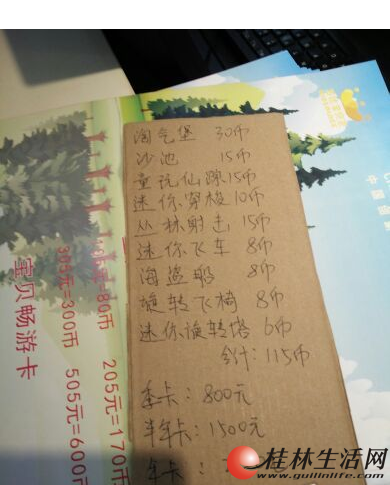 淘气堡 30币
沙池 15币
童玩仙踪15币
迷你穿梭10币
丛林射击 15币
迷你飞车 8币
海盗船 8币
旋转飞椅 8币
迷你旋转塔 6币
合计:115币
季卡:800元
半年卡:1500元
年卡:
宝贝畅游卡
=80币
205元=170币
305元=300币
505元=600
桂林生活网
www.guilinlife.com